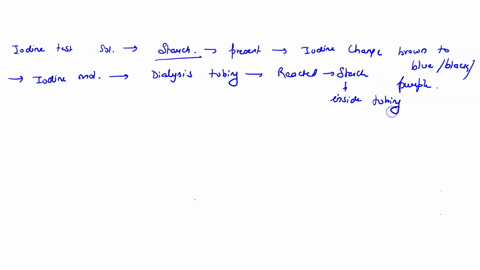 Iodine test sol. → Starch → present → Iodine Change brown to blue/black/purple.
→ Iodine mol. → Dialysis tubing → Reacted → Starch
↓
inside tubing